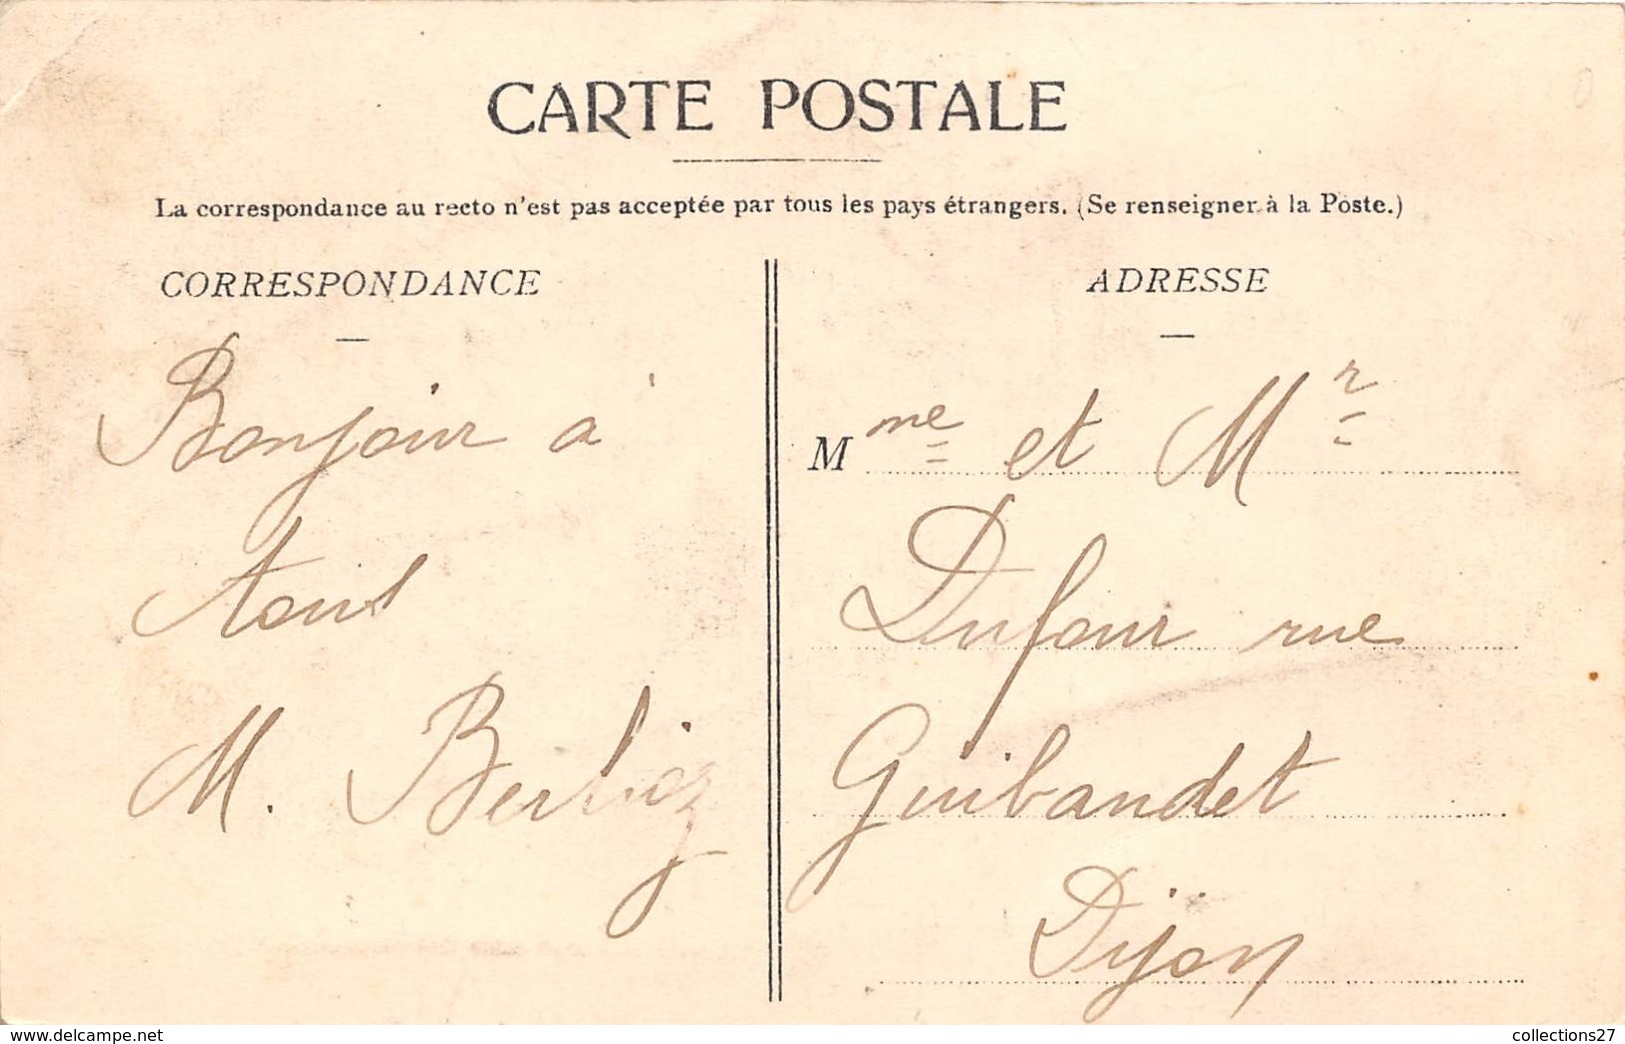 CARTE POSTALE
La correspondance au recto n'est pas acceptée par tous les pays étrangers. (Se renseigner à la Poste.)
CORRESPONDANCE
Bonjour à
tous
M. Berlioz
ADRESSE
Mme et Mr
Dufour rue
Guibaudet
Dijon
www.delcampe.net
collections27